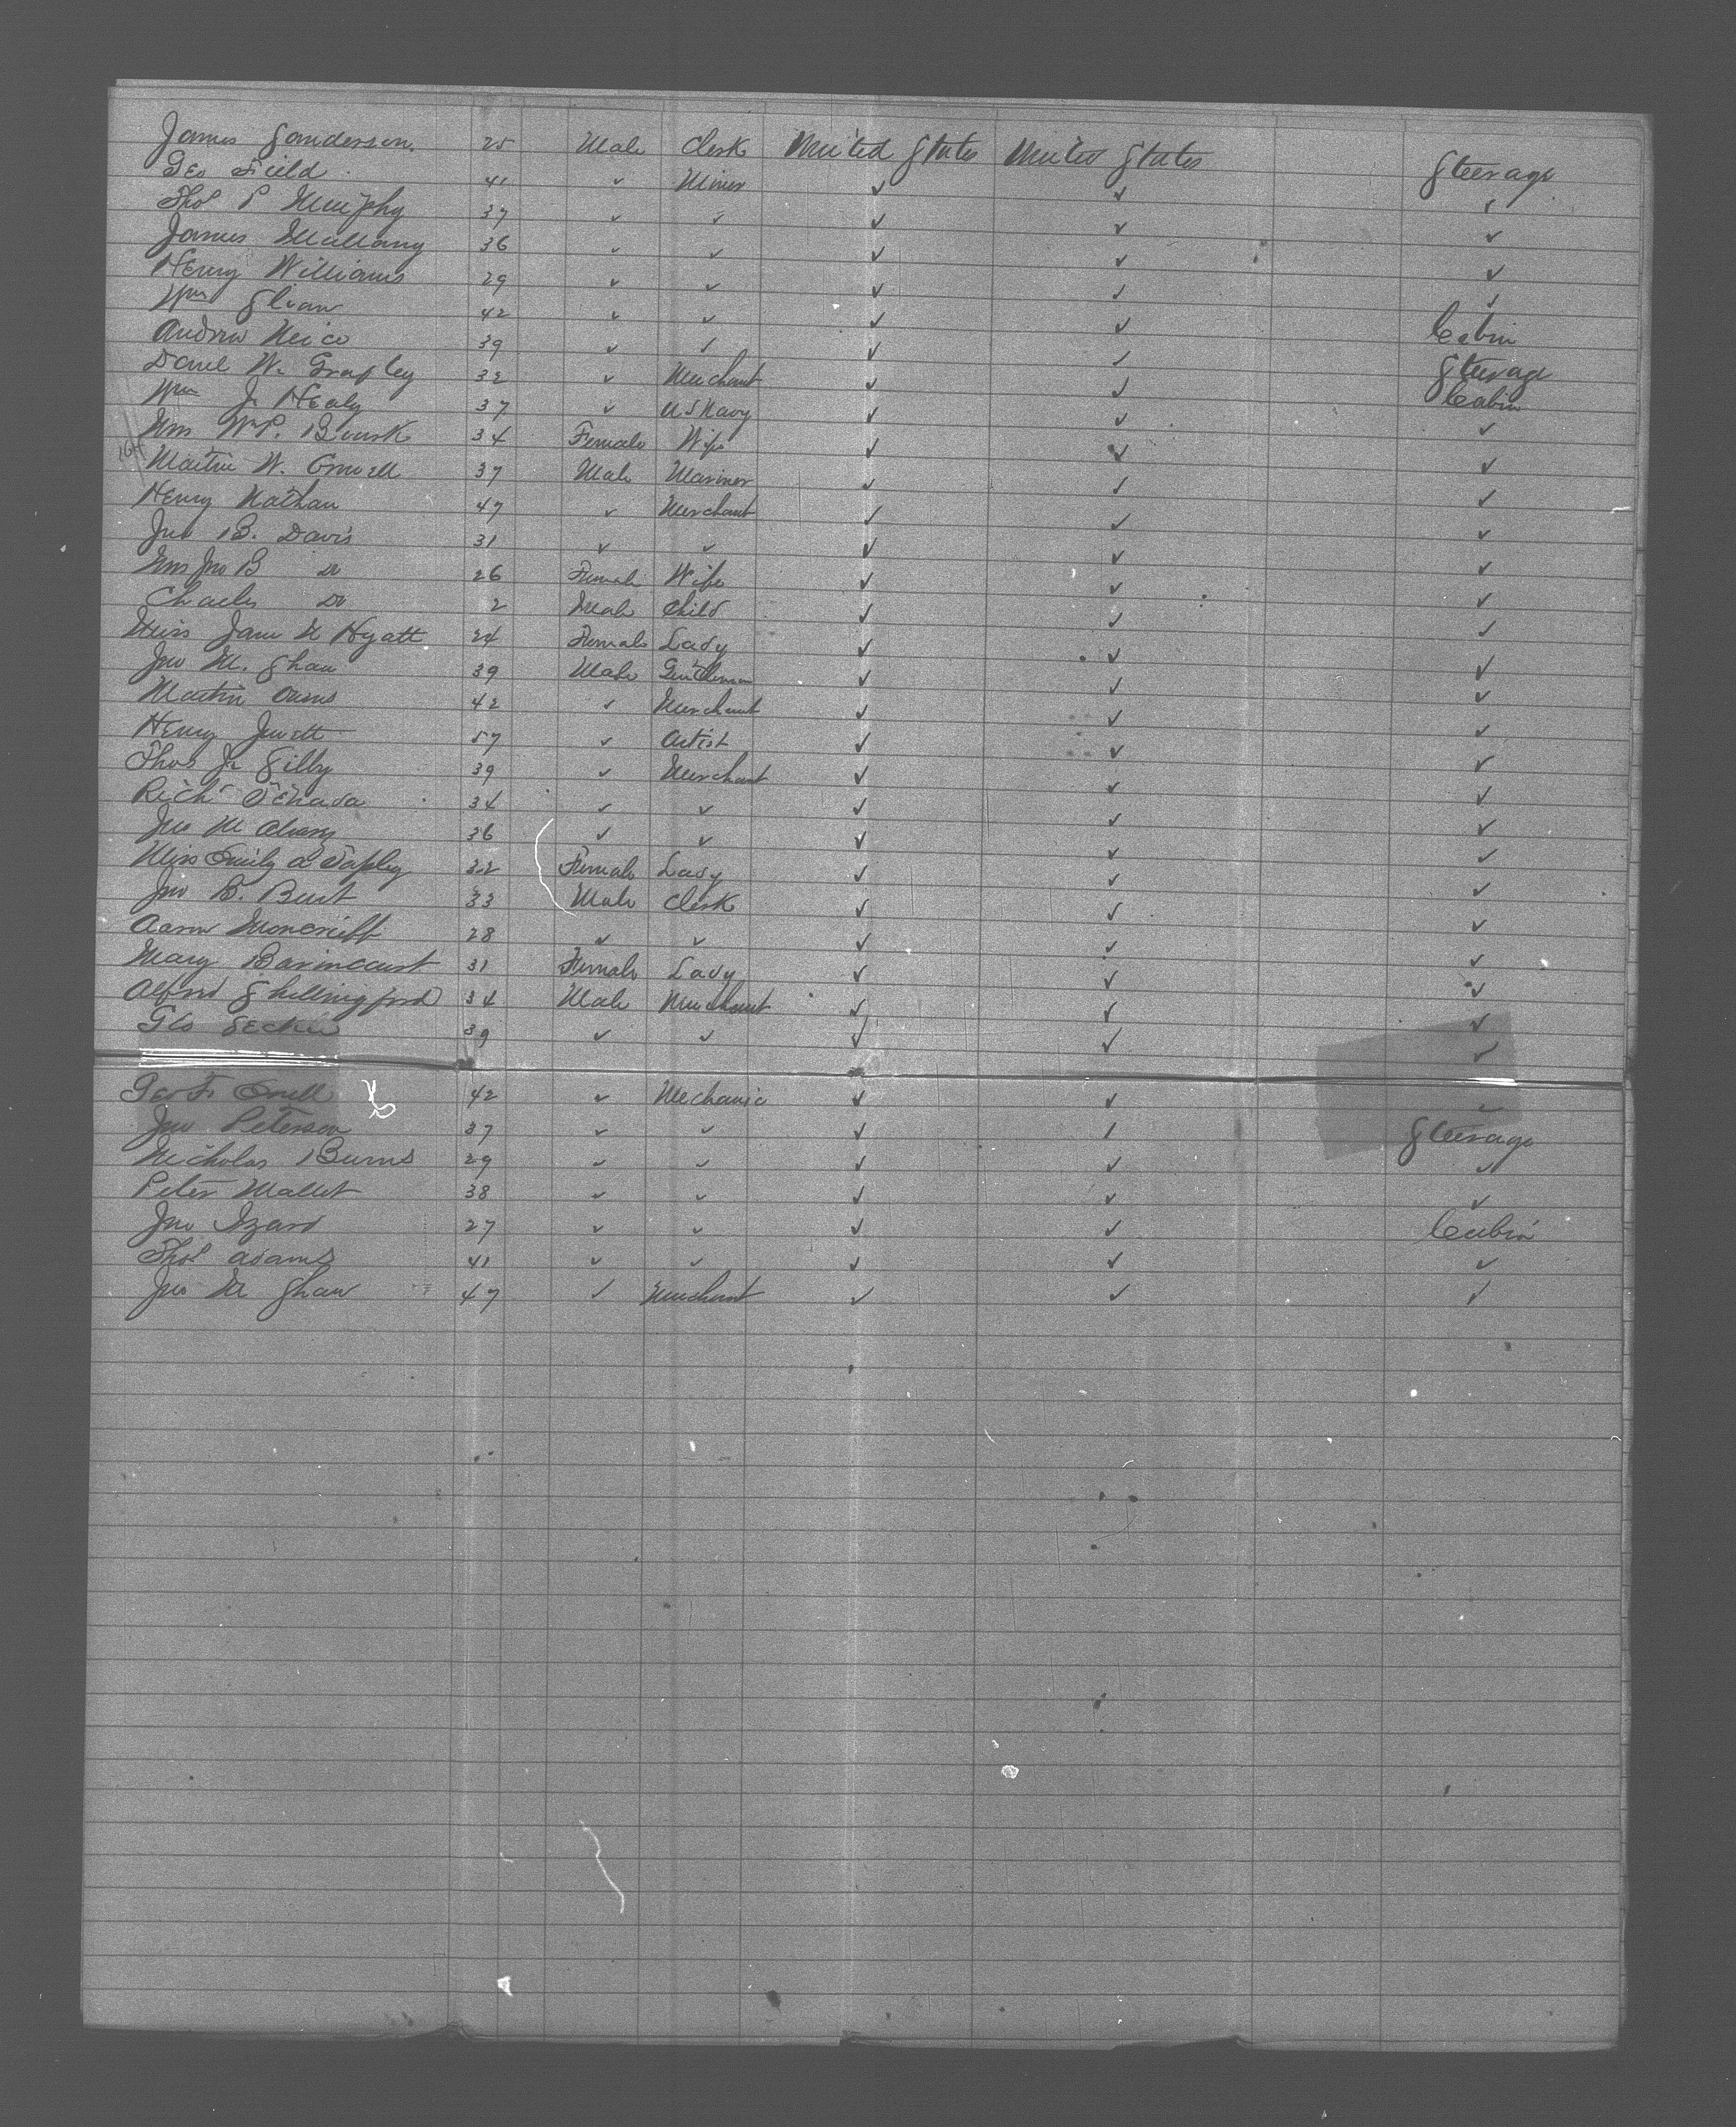 James Sanderson 25 Male Clerk United States United States Steerage
Geo Field 41 ✓ Miner ✓ ✓ ✓
Thos P Murphy 37 ✓ ✓ ✓ ✓ ✓
James Mullany 36 ✓ ✓ ✓ ✓ ✓
Henry Williams 29 ✓ ✓ ✓ ✓ ✓
Wm 42 ✓ ✓ ✓ ✓ Cabin
Andrew 39 ✓ ✓ ✓ ✓ Steerage
Danl W. 32 ✓ Merchant ✓ ✓ Cabin
Wm J. Healy 37 ✓ U S Navy ✓ ✓ ✓
Mrs Wm P. 34 Female Wife ✓ ✓ ✓
Martin W. 37 Male Mariner ✓ ✓ ✓
Henry Nathan 47 ✓ Merchant ✓ ✓ ✓
Jno B. Davis 31 ✓ ✓ ✓ ✓ ✓
Mrs Jno B Do 26 Female Wife ✓ ✓ ✓
Charles Do 2 Male Child ✓ ✓ ✓
Miss Jane M Hyatt 24 Female Lady ✓ ✓ ✓
Jno M. Shaw 39 Male Gentleman ✓ ✓ ✓
Martin Owens 42 ✓ Merchant ✓ ✓ ✓
Henry Jewett 57 ✓ Artist ✓ ✓ ✓
Thos J. Silby 39 ✓ Merchant ✓ ✓ ✓
Richd Tehada 34 ✓ ✓ ✓ ✓ ✓
Jno M 36 ✓ ✓ ✓ ✓ ✓
Miss Emily A Tapley 22 Female Lady ✓ ✓ ✓
Jno B. Burt 33 Male Clerk ✓ ✓ ✓
Aaron Moncrieff 28 ✓ ✓ ✓ ✓ ✓
Mary 31 Female Lady ✓ ✓ ✓
Alfred Shillingford 34 Male Merchant ✓ ✓ ✓
Geo 39 ✓ ✓ ✓ ✓ ✓
Geo F. 42 ✓ Mechanic ✓ ✓ ✓
Jno Peterson 37 ✓ ✓ ✓ ✓ Steerage
Nicholas Burns 29 ✓ ✓ ✓ ✓ ✓
Peter Mallet 38 ✓ ✓ ✓ ✓ ✓
Jno Izard 27 ✓ ✓ ✓ ✓ Cabin
Thos Adams 41 ✓ ✓ ✓ ✓ ✓
Jno M Shaw 47 ✓ Merchant ✓ ✓ ✓